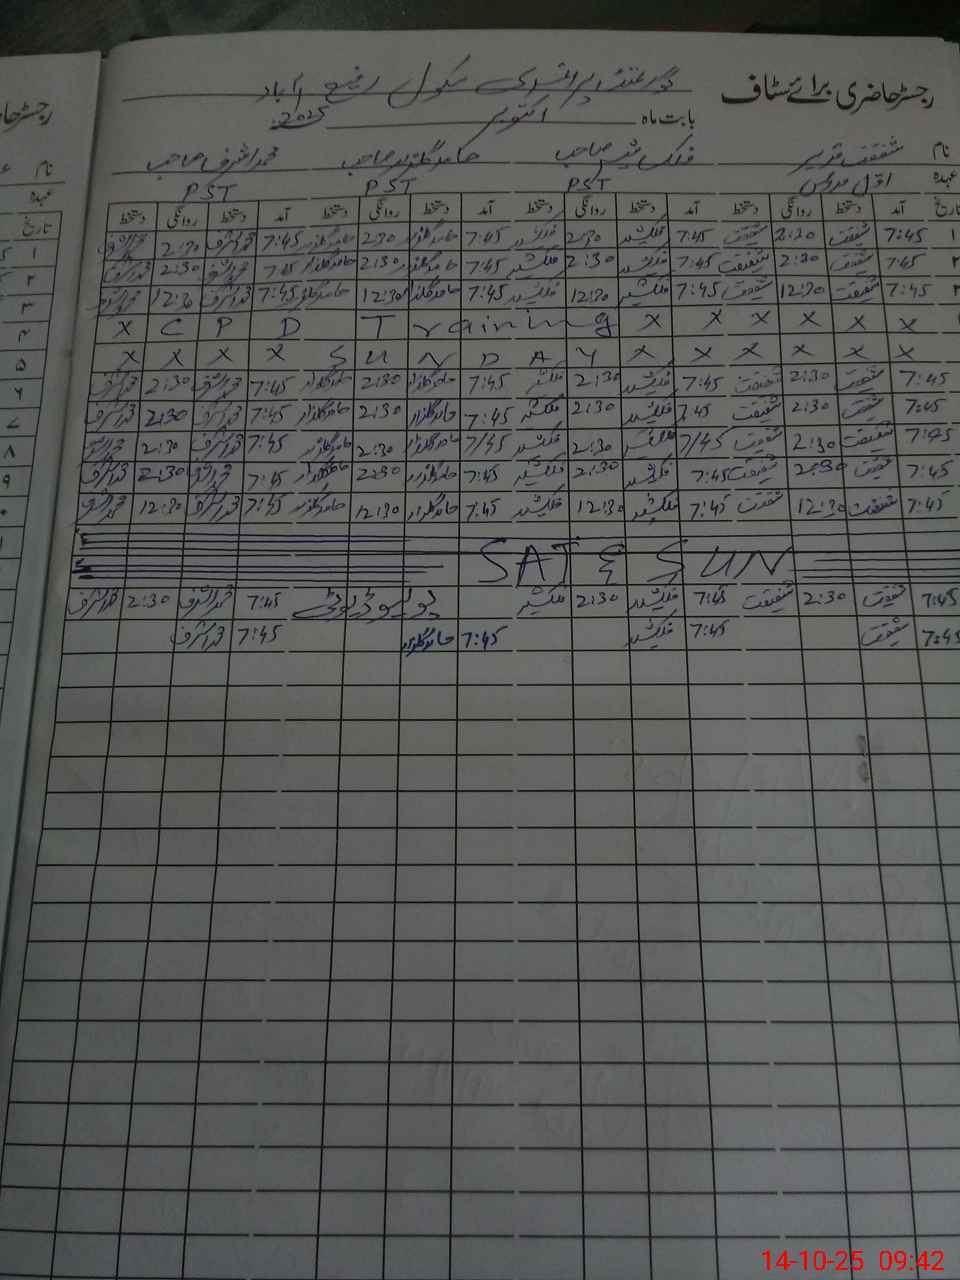 رجسٹر حاضری برائے سٹاف گورنمنٹ پرائمری سکول رفیع آباد
بابت ماہ اکتوبر 2025
نام شفقت قدیر صاحب حامد گلزار صاحب محمد اشرف صاحب
عہدہ اول مدرس PST PST PST
تاریخ آمد دستخط روانگی دستخط آمد دستخط روانگی دستخط آمد دستخط روانگی دستخط آمد دستخط روانگی دستخط
۱ 7:45 شفقت 2:30 شفقت 7:45 2:30 7:45 حامد گلزار 2:30 حامد گلزار 7:45 محمد اشرف 2:30 محمد اشرف
۲ 7:45 شفقت 2:30 شفقت 7:45 2:30 7:45 حامد گلزار 2:30 حامد گلزار 7:45 محمد اشرف 2:30 محمد اشرف
۳ 7:45 شفقت 12:30 شفقت 7:45 12:30 7:45 حامد گلزار 12:30 حامد گلزار 7:45 محمد اشرف 12:30 محمد اشرف
X C P D Training X X X X X X
X X X X S U N D A Y X X X X X X
7:45 شفقت 2:30 شفقت 7:45 2:30 7:45 حامد گلزار 2:30 حامد گلزار 7:45 محمد اشرف 2:30 محمد اشرف
7:45 شفقت 2:30 شفقت 7:45 2:30 7:45 حامد گلزار 2:30 حامد گلزار 7:45 محمد اشرف 2:30 محمد اشرف
7:45 شفقت 2:30 شفقت 7/45 2:30 7/45 حامد گلزار 2:30 حامد گلزار 7:45 محمد اشرف 2:30 محمد اشرف
7:45 شفقت 2:30 شفقت 7:45 2:30 7:45 حامد گلزار 2:30 حامد گلزار 7:45 محمد اشرف 2:30 محمد اشرف
7:45 شفقت 12:30 شفقت 7:45 12:30 7:45 حامد گلزار 12:30 حامد گلزار 7:45 محمد اشرف 12:30 محمد اشرف
SAT & SUN
7:45 شفقت 2:30 شفقت 7:45 2:30 پولیو ڈیوٹی 7:45 محمد اشرف 2:30 محمد اشرف
7:45 شفقت 7:45 7:45 حامد گلزار 7:45 محمد اشرف
14-10-25 09:42